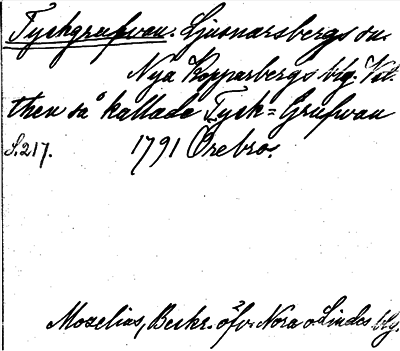 Tyskgrufvan. Ljusnarsbergs sn.
Nya Kopparbergs blg. Vet.
then så kallade Tysk=Grufwan
S.217. 1791 Örebro.
Moselius, Beskr. öfv. Nora o Lindes blg.